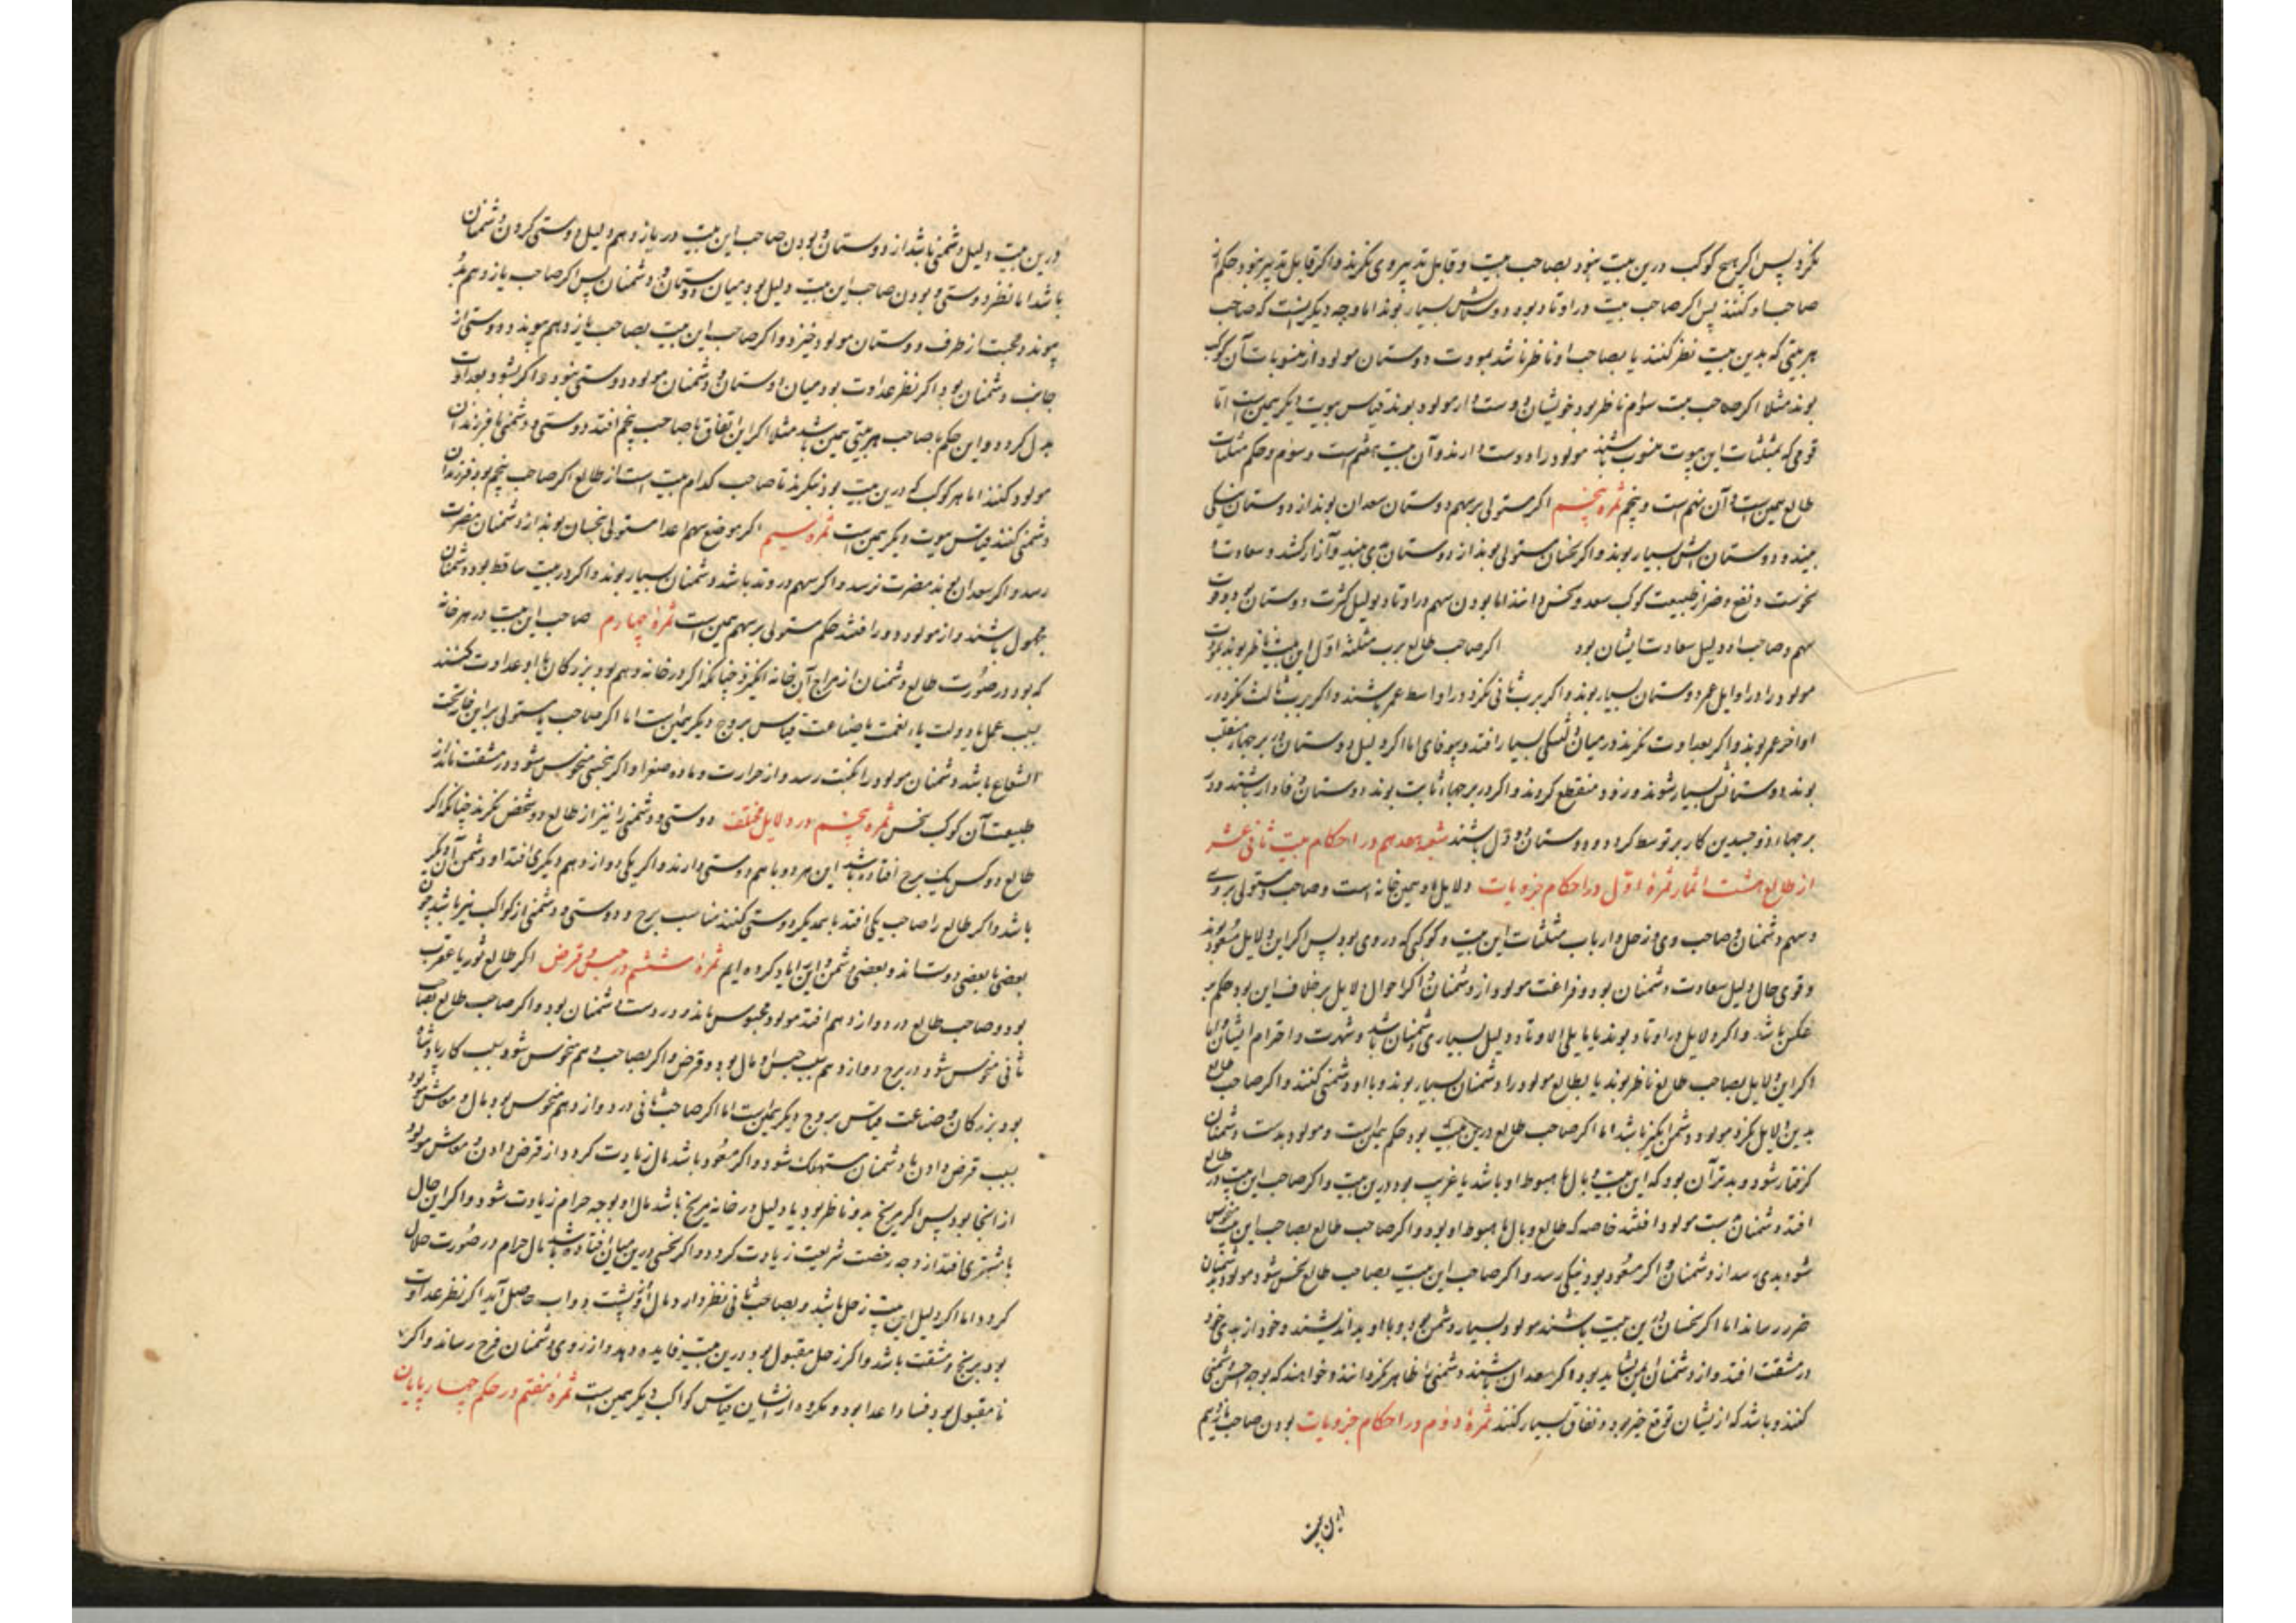 نکرد پس اگر هیچ کوکب درین بیت نبود بصاحب بیت و قابل تدبیر وی نکرند و اکر قابل تدبیر نبود حکم از
صاحب او کنند پس اکر صاحب بیت در اوتاد بود دوستانش بسیار بوند اما وجه دیکر آنست که صاحب
هر بیتی که بدین بیت نظر کنند یا بصاحب او ناظر باشد بمودت دوستان مولود از منسوبات آن کوکب
بوند مثلا اکر صاحب بیت سوم ناظر بود خویشان دوست دار مولود بوند قیاس بیوت دیکر همین است اما
قومی که بمثلثات این بیوت منسوب باشند مولود را دوست دارند و آن بیت هفتم است و سوم و حکم مثلثات
طالع همین است و آن نهم است و پنجم ثمره پنجم اکر مستولی بر سهم دوستان سعدان بوند از دوستان نیکی
بیند و دوستانش بسیار بوند و اکر نحسان مستولی بوند از دوستان بدی بیند و آزار کشد و سعادت و
نحوست و نفع و ضر از طبیعت کوکب سعد و نحس دانند اما بودن سهم در اوتاد دلیل کثرت دوستان بود و قوت
سهم و صاحب او دلیل سعادت ایشان بود اکر صاحب طالع برب مثلثه اول این بیت ناظر بوند بمودت
مولود را در اوایل عمر دوستان بسیار بوند و اکر برب ثانی نکرد در اواسط عمر باشند و اکر برب ثالث نکرد در
اواخر عمر بوند و اکر بعداوت نکرند در میان بسیار افتد و بیوفای اما اکر دلیل دوستان در برجهاء منقلب
بوند دوستانش بسیار شوند و زود منقطع کردند و اکر در برجهاء ثابت بوند دوستان وفادار باشند و در
برجهاء ذوجسدین کار بر توسط کردد و دوستان دودل باشند شعبه هجدهم در احکام بیت ثانی عشر
از طالع هشت اثمار ثمره اول در احکام جزویات دلایل او همین خانه است و صاحب و مستولی بر وی
و سهم دشمنان و صاحب وی و زحل و ارباب مثلثات این بیت و کوکبی که در وی بود پس اکر این دلایل مسعود بوند
و قوی حال دلیل سعادت دشمنان بود و فراغت مولود از دشمنان و اکر احوال دلایل برخلاف این بود حکم بر
عکس باشد و اکر دلایل در اوتاد بوند یا مایلی الاوتاد دلیل بسیاری دشمنان باشد و شهرت و احترام ایشان اما
اکر این دلایل بصاحب طالع ناظر بوند یا بطالع مولود را دشمنان بسیار بوند و با او دشمنی کنند و اکر صاحب طالع
بدین دلایل نکرد مولود دشمن انکیز باشد اما اکر صاحب طالع درین بیت بود حکم همان است و مولود بدست دشمنان
کرفتار شود و بدتر آن بود که این بیت وبال یا هبوط او باشد یا غریب بود درین بیت و اکر صاحب این بیت در طالع
افتد دشمنان بدست مولود افتند خاصه که طالع وبال یا هبوط او بود و اکر صاحب طالع بصاحب این بیت منحوس
شود بدی رسد از دشمنان و اکر مسعود بود نیکی رسد و اکر صاحب این بیت بصاحب طالع نحس شود مولود بدشمنان
ضرر رساند اما اکر نحسان درین بیت باشند مولود بسیار دشمن بود و با او بد اندیشند و خود از بدی خود
در مشقت افتد و از دشمنان ایمن نشاید بود و اکر سعدان باشند دشمنی را ظاهر نکردانند و خواهند که بوجه احسن دشمنی
کنند و باشد که از یشان توقع خیر بود و نفاق بسیار کنند ثمره دوم در احکام جزویات بودن صاحب یازدهم
این بیت
درین بیت دلیل دشمنی باشد از دوستان و بودن صاحب این بیت در یازدهم دلیل دوستی کردن دشمنان
باشد اما نظر دوستی و بودن صاحب این بیت دلیل بود میان دوستان و دشمنان پس اکر صاحب یازدهم بدو
پیوندد محبت از طرف دوستان مولود خیزد و اکر صاحب این بیت بصاحب یازدهم پیوندد دوستی از
جانب دشمنان بود و اکر نظر عداوت بود میان دوستان و دشمنان مولود دوستی نبود و اکر بشود بعداوت
بدل کردد و این حکم با صاحب هر بیتی همین باشد مثلا اکر این اتفاق با صاحب پنجم افتد دوستی و دشمنی با فرزندان
مولود کنند اما هر کوکب که درین بیت بود بنکرند تا صاحب کدام بیت است از طالع اکر صاحب پنجم بود فرزندان
دشمنی کنند قیاس بیوت دیکر همین است ثمره سیم اکر موضع سهم اعدا مستولی نحسان بوند از دشمنان مضرت
رسد و اکر سعدان بوند مضرت نرسد و اکر سهم در وتد باشد دشمنان بسیار بوند و اکر در بیت ساقط بود دشمنان
مجهول باشند و از مولود دور افتند حکم مستولی بر سهم همین است ثمره چهارم صاحب این بیت در هر خانه
که بود در صورت طالع دشمنان از مزاج آن خانه انکیزد چنانکه اکر در خانه دهم بود بزرکان با او عداوت کنند
بسبب عمل یا دولت یا رفعت یا صناعت قیاس بروج دیکر همان است اما اکر صاحب یا مستولی بر این خانه تحت
الشعاع باشد دشمنان مولود را نکبت رسد و از حرارت و ماده صفرا و اکر بنحسی منحوس شود در مشقت مانند از
طبیعت آن کوکب نحس ثمره پنجم در دلایل مختلف دوستی و دشمنی را نیز از طالع دو شخص نکرند چنانکه اکر
طالع دو کس یک برج افتاده باشد این هر دو با هم دوستی دارند و اکر یکی دوازدهم دیکری افتد او دشمن آن دیکر
باشد و اکر طالع را صاحب یکی افتد با همدیکر دوستی کنند مناسب برج و دوستی و دشمنی از کواکب نیز باشد چون
بعضی با بعضی دوستند و بعضی دشمن و این را یاد کرده ایم ثمره ششم در حبس و قرض اکر طالع ثور یا عقرب
بود و صاحب طالع در دوازدهم افتد مولود محبوس ماند و در دست دشمنان بود و اکر صاحب طالع بصاحب
ثانی منحوس شود در برج دوازدهم بسبب حبس او مال بود و قرض و اکر بصاحب دهم منحوس شود بسبب کار پادشاه
بود و بزرکان و صناعت قیاس بروج دیکر همان است اما اکر صاحب ثانی در دوازدهم منحوس بود مال و معاش مولود
بسبب قرض دادن با دشمنان مستهلک شود و اکر مسعود باشد مال زیادت کردد از قرض دادن و معاش مولود
از انجا بود پس اکر مریخ بدو ناظر بود یا دلیل در خانه مریخ باشد مال او بوجه حرام زیادت شود و اکر این حال
با مشتری افتد از وجه رخصت شریعت زیادت کردد و اکر نحسی درین میان افتاده باشد مال حرام در صورت حلال
کردد اما اکر دلیل این بیت زحل باشد و بصاحب ثانی نظر دارد مال از پشت دواب حاصل آید اکر نظر عداوت
بود برنج و مشقت باشد و اکر زحل مقبول بود درین بیت فایده دهد و از روی دشمنان فرح رساند و اکر
نامقبول بود فساد اعدا بود و مکروه از ایشان قیاس کواکب دیکر همین است ثمره هفتم در حکم چهارپایان